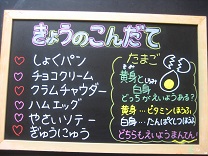 きょうのこんだて
♡しょくパン
♡チョコクリーム
♡クラムチャウダー
♡ハムエッグ
♡やさいソテー
♡ぎゅうにゅう
たまご
黄身と
白身
どっちがえいようある?
黄身…ビタミン(ほうふ)
白身…たんぱくしつ(ほうふ)
どちらもえいようまんてん!